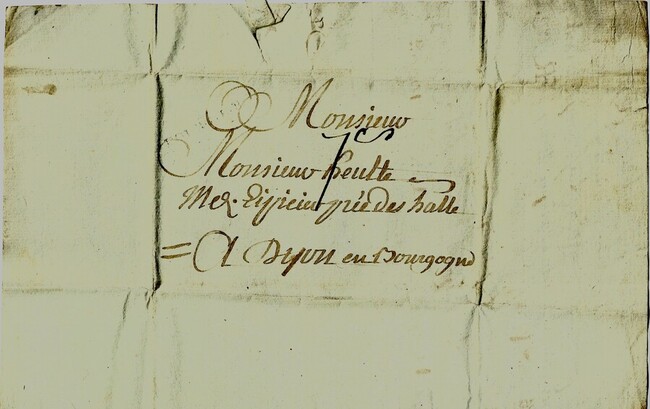 Monsieur
Monsieur heulte
Md. Epicier prée des halle
= A Dijon en Bourgogne